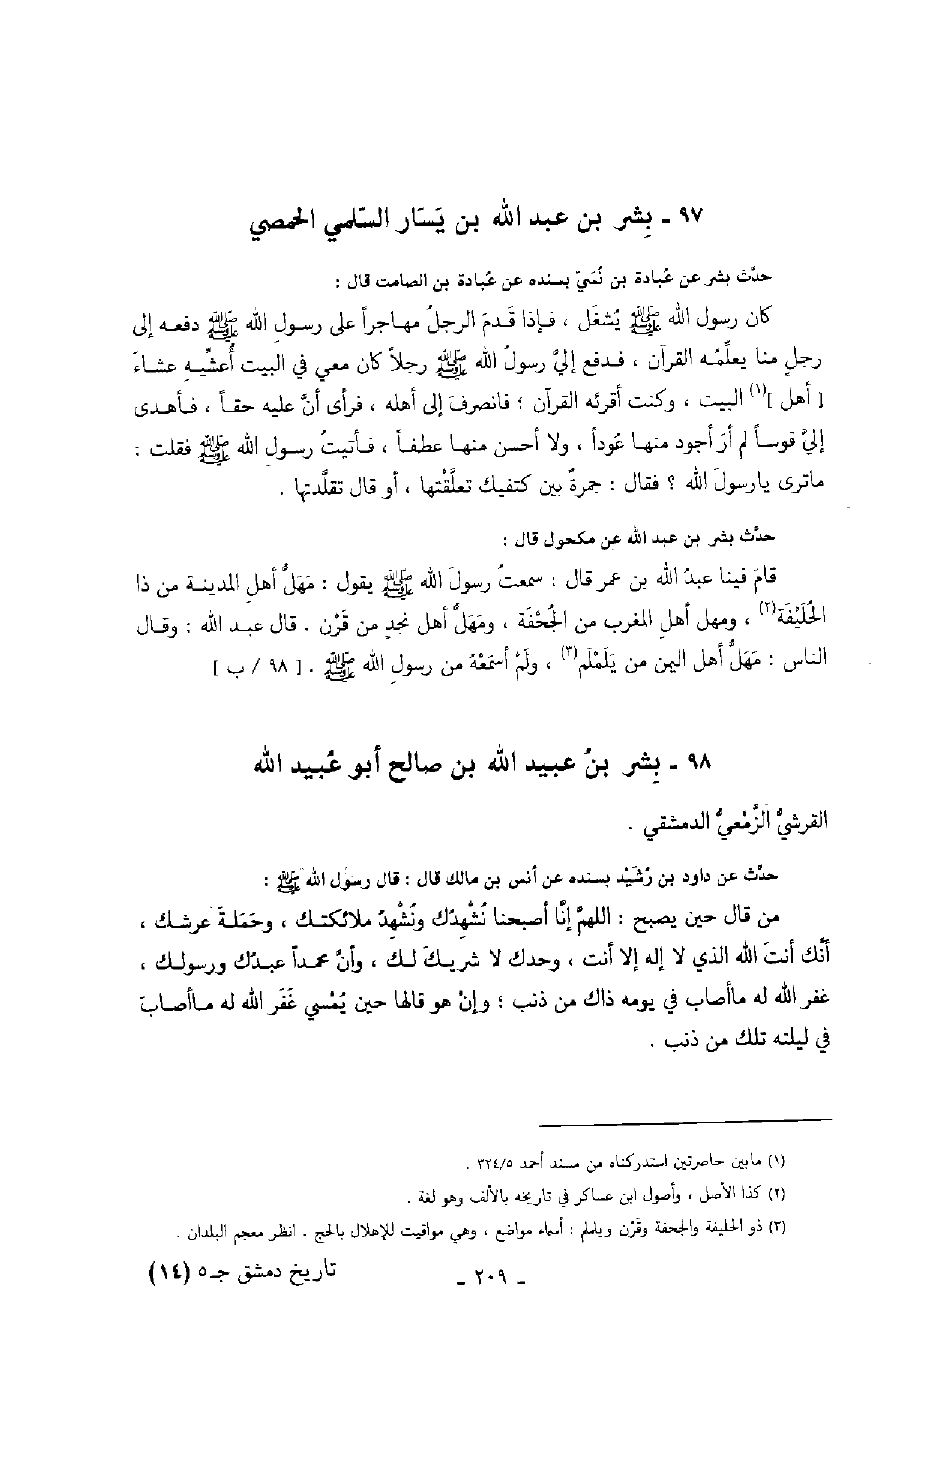 ٩٧ - بِشر بن عبد الله بن يَسَار السّلمي الحمصي
حدَّث بشر عن عُبادة بن نُسَيّ بسنده عن عُبادة بن الصامت قال :
كان رسول الله ﷺ يُشغَل ، فإذا قدمَ الرجلُ مهاجراً على رسولِ الله ﷺ دفعه إلى
رجلٍ منا يعلِّمُه القرآن ، فدفع إليَّ رسولُ الله ﷺ رجلاً كان معي في البيت أُعشِّيهِ عشاءَ
[ أهل ](١) البيت ، وكنت أقرئه القرآن ؛ فانصرفَ إلى أهله ، فرأى أنَّ عليه حقاً ، فأهدى
إليَّ قوساً لم أرَ أجود منها عُوداً ، ولا أحسن منها عطفاً ، فأتيتُ رسولِ الله ﷺ فقلت :
ماترى يارسولَ الله ؟ فقال : جمرةٌ بين كتفيك تعلَّقْتها ، أو قال تقلَّدتها .
حدَّث بشر بن عبد الله عن مكحول قال :
قامَ فينا عبدُ الله بن عمر قال : سمعتُ رسولَ الله ﷺ يقول : مَهَلُّ أهلِ المدينة من ذا
الحُلَيْفَة(٢) ، ومهل أهلِ المغرب من الجُحْفَة ، ومَهَلُّ أهل نجدٍ من قَرْن . قال عبد الله : وقال
الناس : مَهَلُّ أهل اليمن من يَلَمْلَم(٣) ، ولَمْ أسمَعْهُ من رسولِ الله ﷺ . [ ٩٨ / ب ]
٩٨ - بِشر بنُ عبيد الله بن صالح أبو عُبيد الله
القرشيُّ الزَّمْعيُّ الدمشقي .
حدَّث عن داود بن رُشَيْد بسنده عن أنس بن مالك قال : قال رسول الله ﷺ :
من قال حين يصبح : اللهمَّ إنَّا أصبحنا نُشْهِدُك ونُشْهِدُ ملائكتك ، وحَمَلةَ عرشك ،
أنَّك أنتَ الله الذي لا إله إلا أنت ، وحدك لا شريكَ لك ، وأنَّ محمداً عبدُك ورسولك ،
غفر الله له ماأصاب في يومه ذاك من ذنب ؛ وإنْ هو قالها حين يُمْسي غَفَر الله له ماأصابَ
في ليلته تلك من ذنب .
(١) مابين حاصرتين استدركناه من مسند أحمد ٣٢٤/٥ .
(٢) كذا الأصل ، وأصول ابن عساكر في تاريخه بالألف وهو لغة .
(٣) ذو الحليفة والجحفة وقَرْن ويلملم : أسماء مواضع ، وهي مواقيت للإهلال بالحج . انظر معجم البلدان .
- ٢٠٩ -
تاريخ دمشق جـ٥ (١٤)